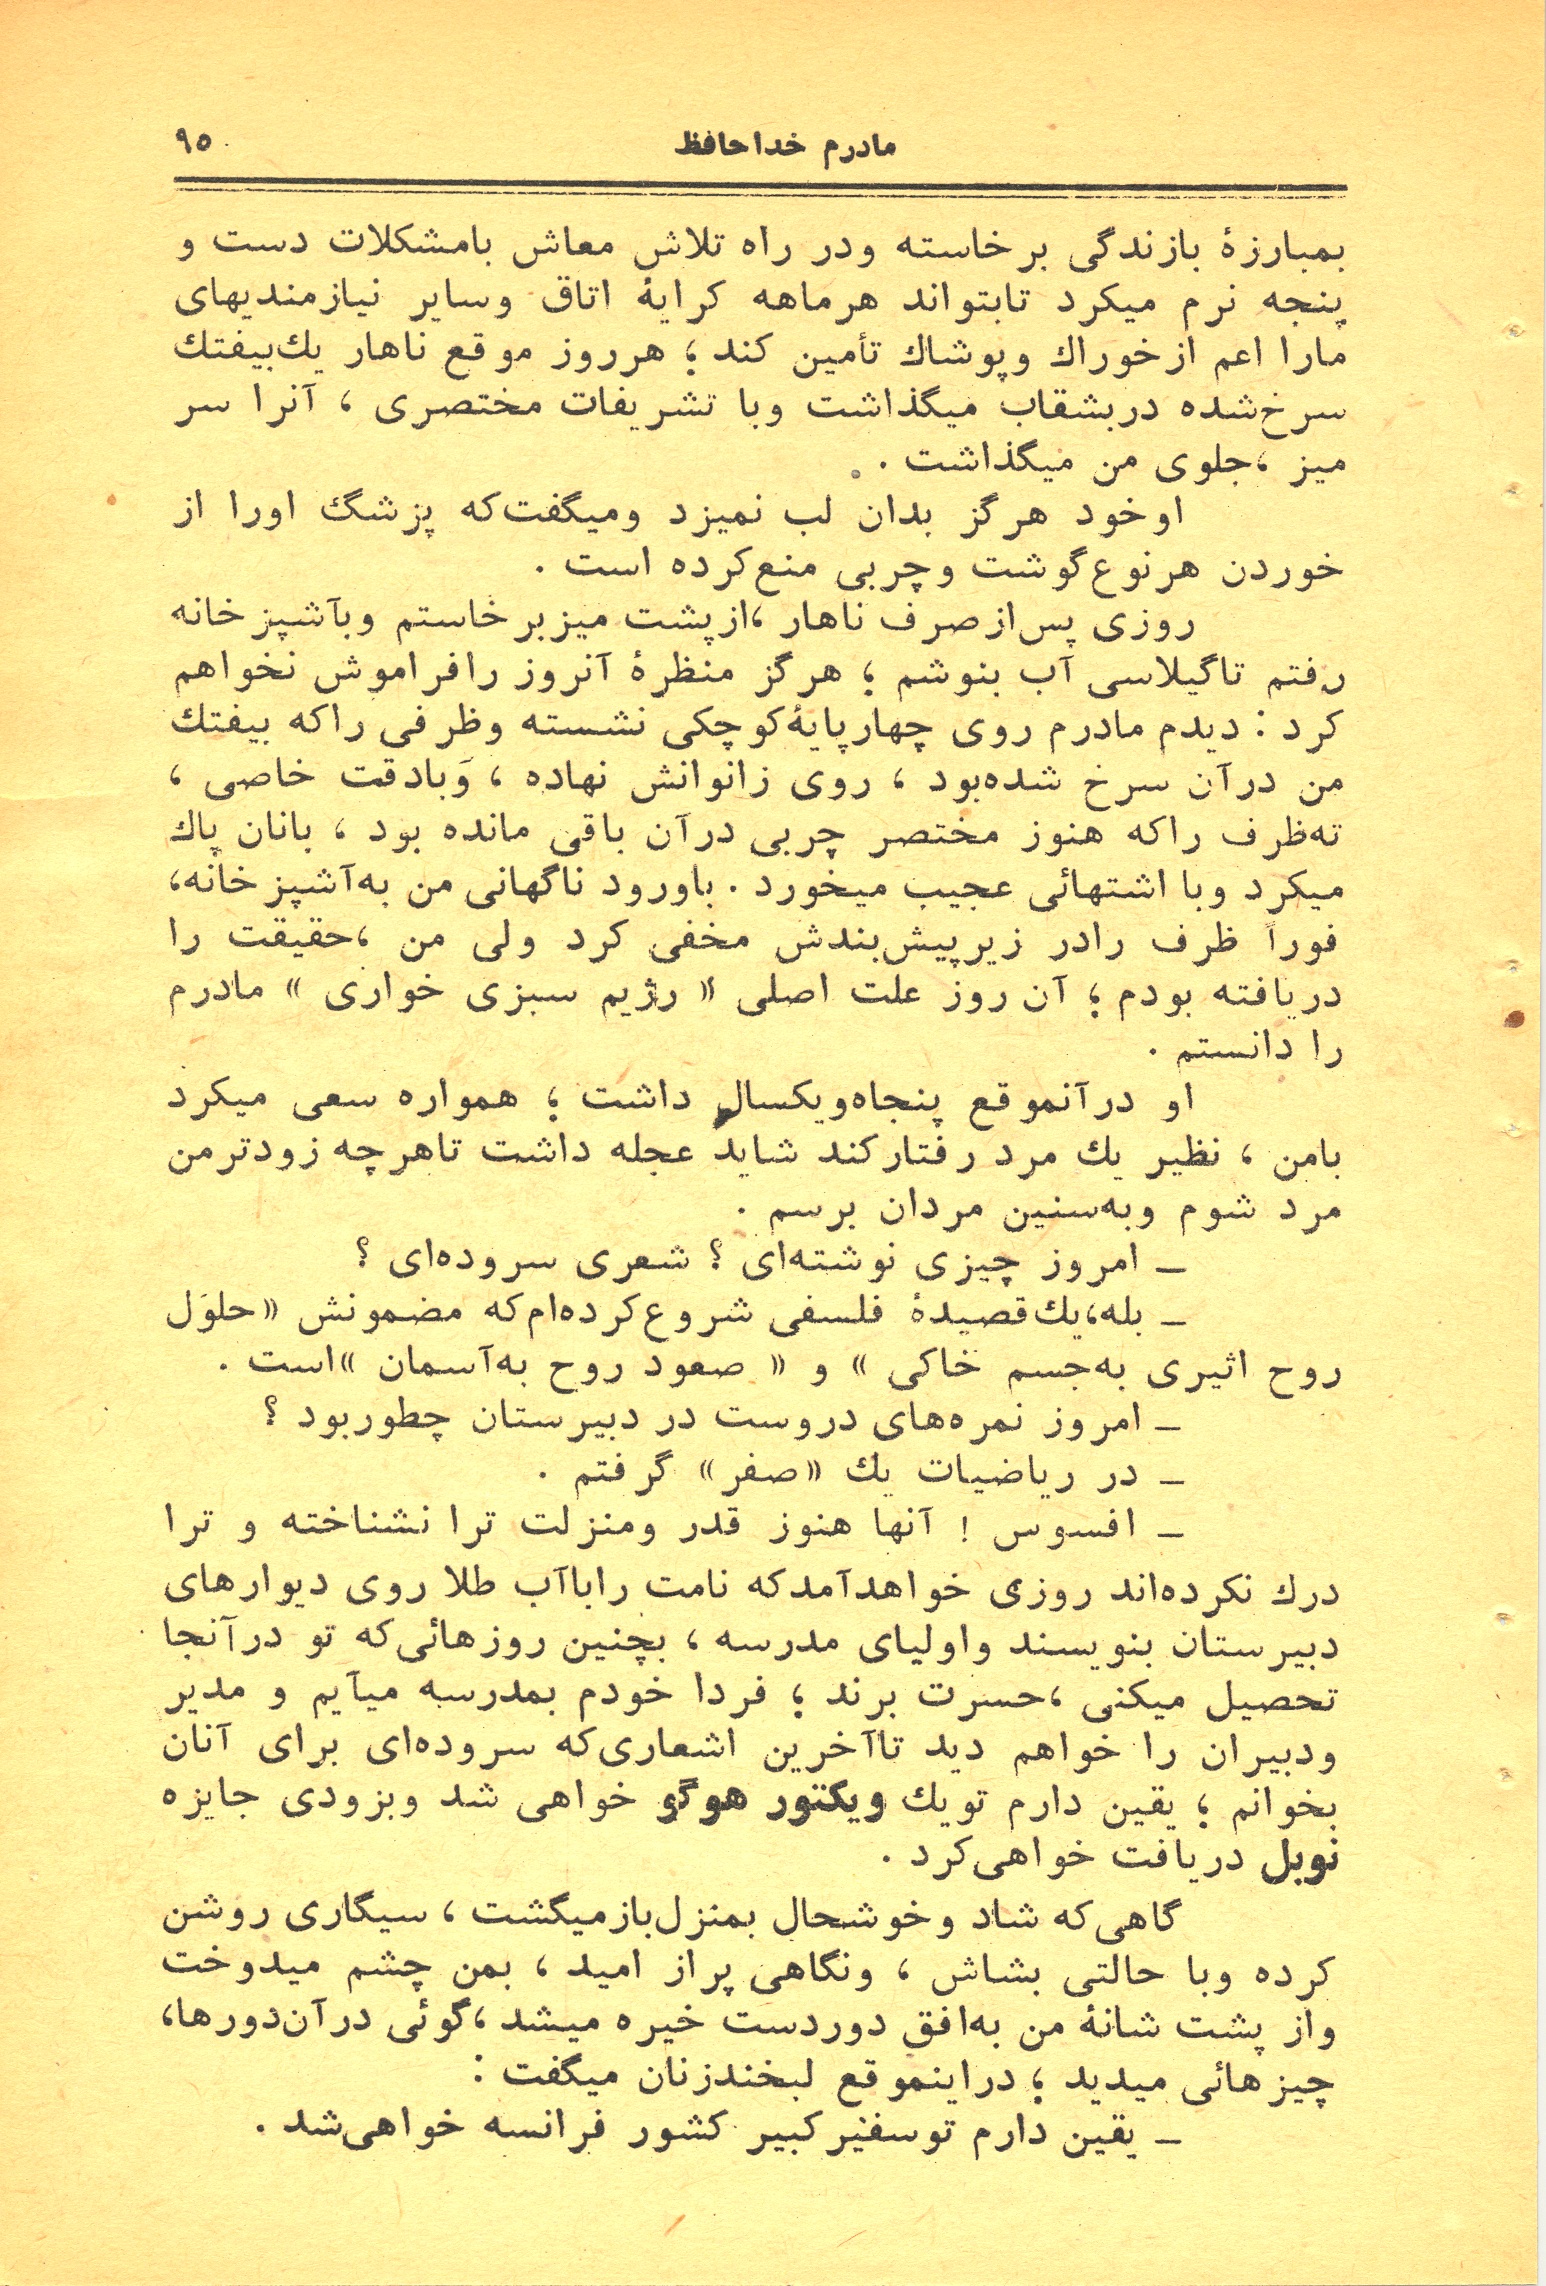 مادرم خداحافظ ۹۵
بمبارزهٔ بازندگی برخاسته ودر راه تلاش معاش بامشکلات دست و
پنجه نرم میکرد تابتواند هرماهه کرایهٔ اتاق وسایر نیازمندیهای
مارا اعم ازخوراك وپوشاك تأمین کند ؛ هرروز موقع ناهار یك‌بیفتك
سرخ‌شده دربشقاب میگذاشت وبا تشریفات مختصری ، آنرا سر
میز ،جلوی من میگذاشت .
اوخود هرگز بدان لب نمیزد ومیگفت‌که پزشگ اورا از
خوردن هرنوع‌گوشت وچربی منع‌کرده است .
روزی پس‌ازصرف ناهار ،ازپشت میزبرخاستم وبآشپزخانه
رفتم تاگیلاسی آب بنوشم ؛ هرگز منظرهٔ آنروز رافراموش نخواهم
کرد : دیدم مادرم روی چهارپایهٔ‌کوچکی نشسته وظرفی راکه بیفتك
من درآن سرخ شده‌بود ، روی زانوانش نهاده ، وَبادقت خاصی ،
ته‌ظرف راکه هنوز مختصر چربی درآن باقی مانده بود ، بانان پاك
میکرد وبا اشتهائی عجیب میخورد . باورود ناگهانی من به‌آشپزخانه،
فوراً ظرف رادر زیرپیش‌بندش مخفی کرد ولی من ،حقیقت را
دریافته بودم ؛ آن روز علت اصلی « رژیم سبزی خواری » مادرم
را دانستم .
او درآنموقع پنجاه‌ویکسال داشت ؛ همواره سعی میکرد
بامن ، نظیر یك مرد رفتارکند شاید عجله داشت تاهرچه زودترمن
مرد شوم وبه‌سنین مردان برسم .
ــ امروز چیزی نوشته‌ای ؟ شعری سروده‌ای ؟
ــ بله،یك‌قصیدهٔ فلسفی شروع‌کرده‌ام‌که مضمونش «حلول
روح اثیری به‌جسم خاکی » و « صعود روح به‌آسمان »است .
ــ امروز نمره‌های دروست در دبیرستان چطوربود ؟
ــ در ریاضیات یك «صفر» گرفتم .
ــ افسوس ! آنها هنوز قدر ومنزلت ترا نشناخته و ترا
درك نکرده‌اند روزی خواهدآمدکه نامت راباآب طلا روی دیوارهای
دبیرستان بنویسند واولیای مدرسه ، بچنین روزهائی‌که تو درآنجا
تحصیل میکنی ،حسرت برند ؛ فردا خودم بمدرسه میآیم و مدیر
ودبیران را خواهم دید تاآخرین اشعاری‌که سروده‌ای برای آنان
بخوانم ؛ یقین دارم تویك ویکتور هوگو خواهی شد وبزودی جایزه
نوبل دریافت خواهی‌کرد .
گاهی‌که شاد وخوشحال بمنزل‌بازمیگشت ، سیگاری روشن
کرده وبا حالتی بشاش ، ونگاهی پراز امید ، بمن چشم میدوخت
واز پشت شانهٔ من به‌افق دوردست خیره میشد ،گوئی درآن‌دورها،
چیزهائی میدید ؛ دراینموقع لبخندزنان میگفت :
ــ یقین دارم توسفیرکبیر کشور فرانسه خواهی‌شد .